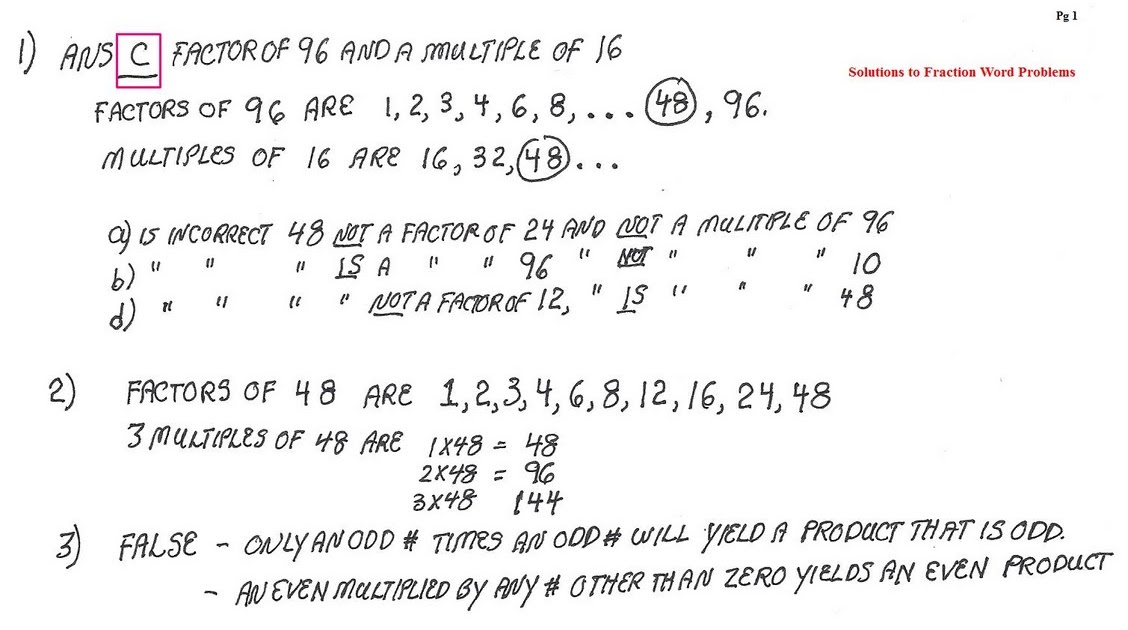 Pg 1
1) ANS C FACTOR OF 96 AND A MULTIPLE OF 16
Solutions to Fraction Word Problems
FACTORS OF 96 ARE 1, 2, 3, 4, 6, 8, ... 48, 96.
MULTIPLES OF 16 ARE 16, 32, 48 ...
a) IS INCORRECT 48 NOT A FACTOR OF 24 AND NOT A MULITPLE OF 96
b) " " " IS A " " 96 " NOT " " " 10
d) " " " " NOT A FACTOR OF 12, " IS " " " 48
2) FACTORS OF 48 ARE 1, 2, 3, 4, 6, 8, 12, 16, 24, 48
3 MULTIPLES OF 48 ARE 1X48 = 48
2X48 = 96
3X48 144
3) FALSE - ONLY AN ODD # TIMES AN ODD # WILL YIELD A PRODUCT THAT IS ODD.
- AN EVEN MULTIPLIED BY ANY # OTHER THAN ZERO YIELDS AN EVEN PRODUCT